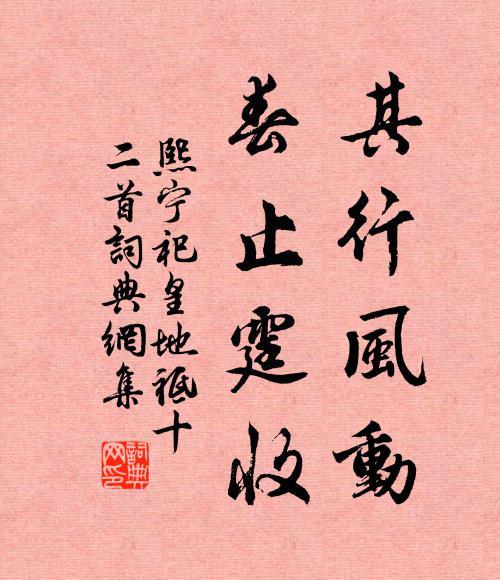 其行風動
春止霆收
熙宁祀皇地祇十
二首詞典網集
詞典
网印